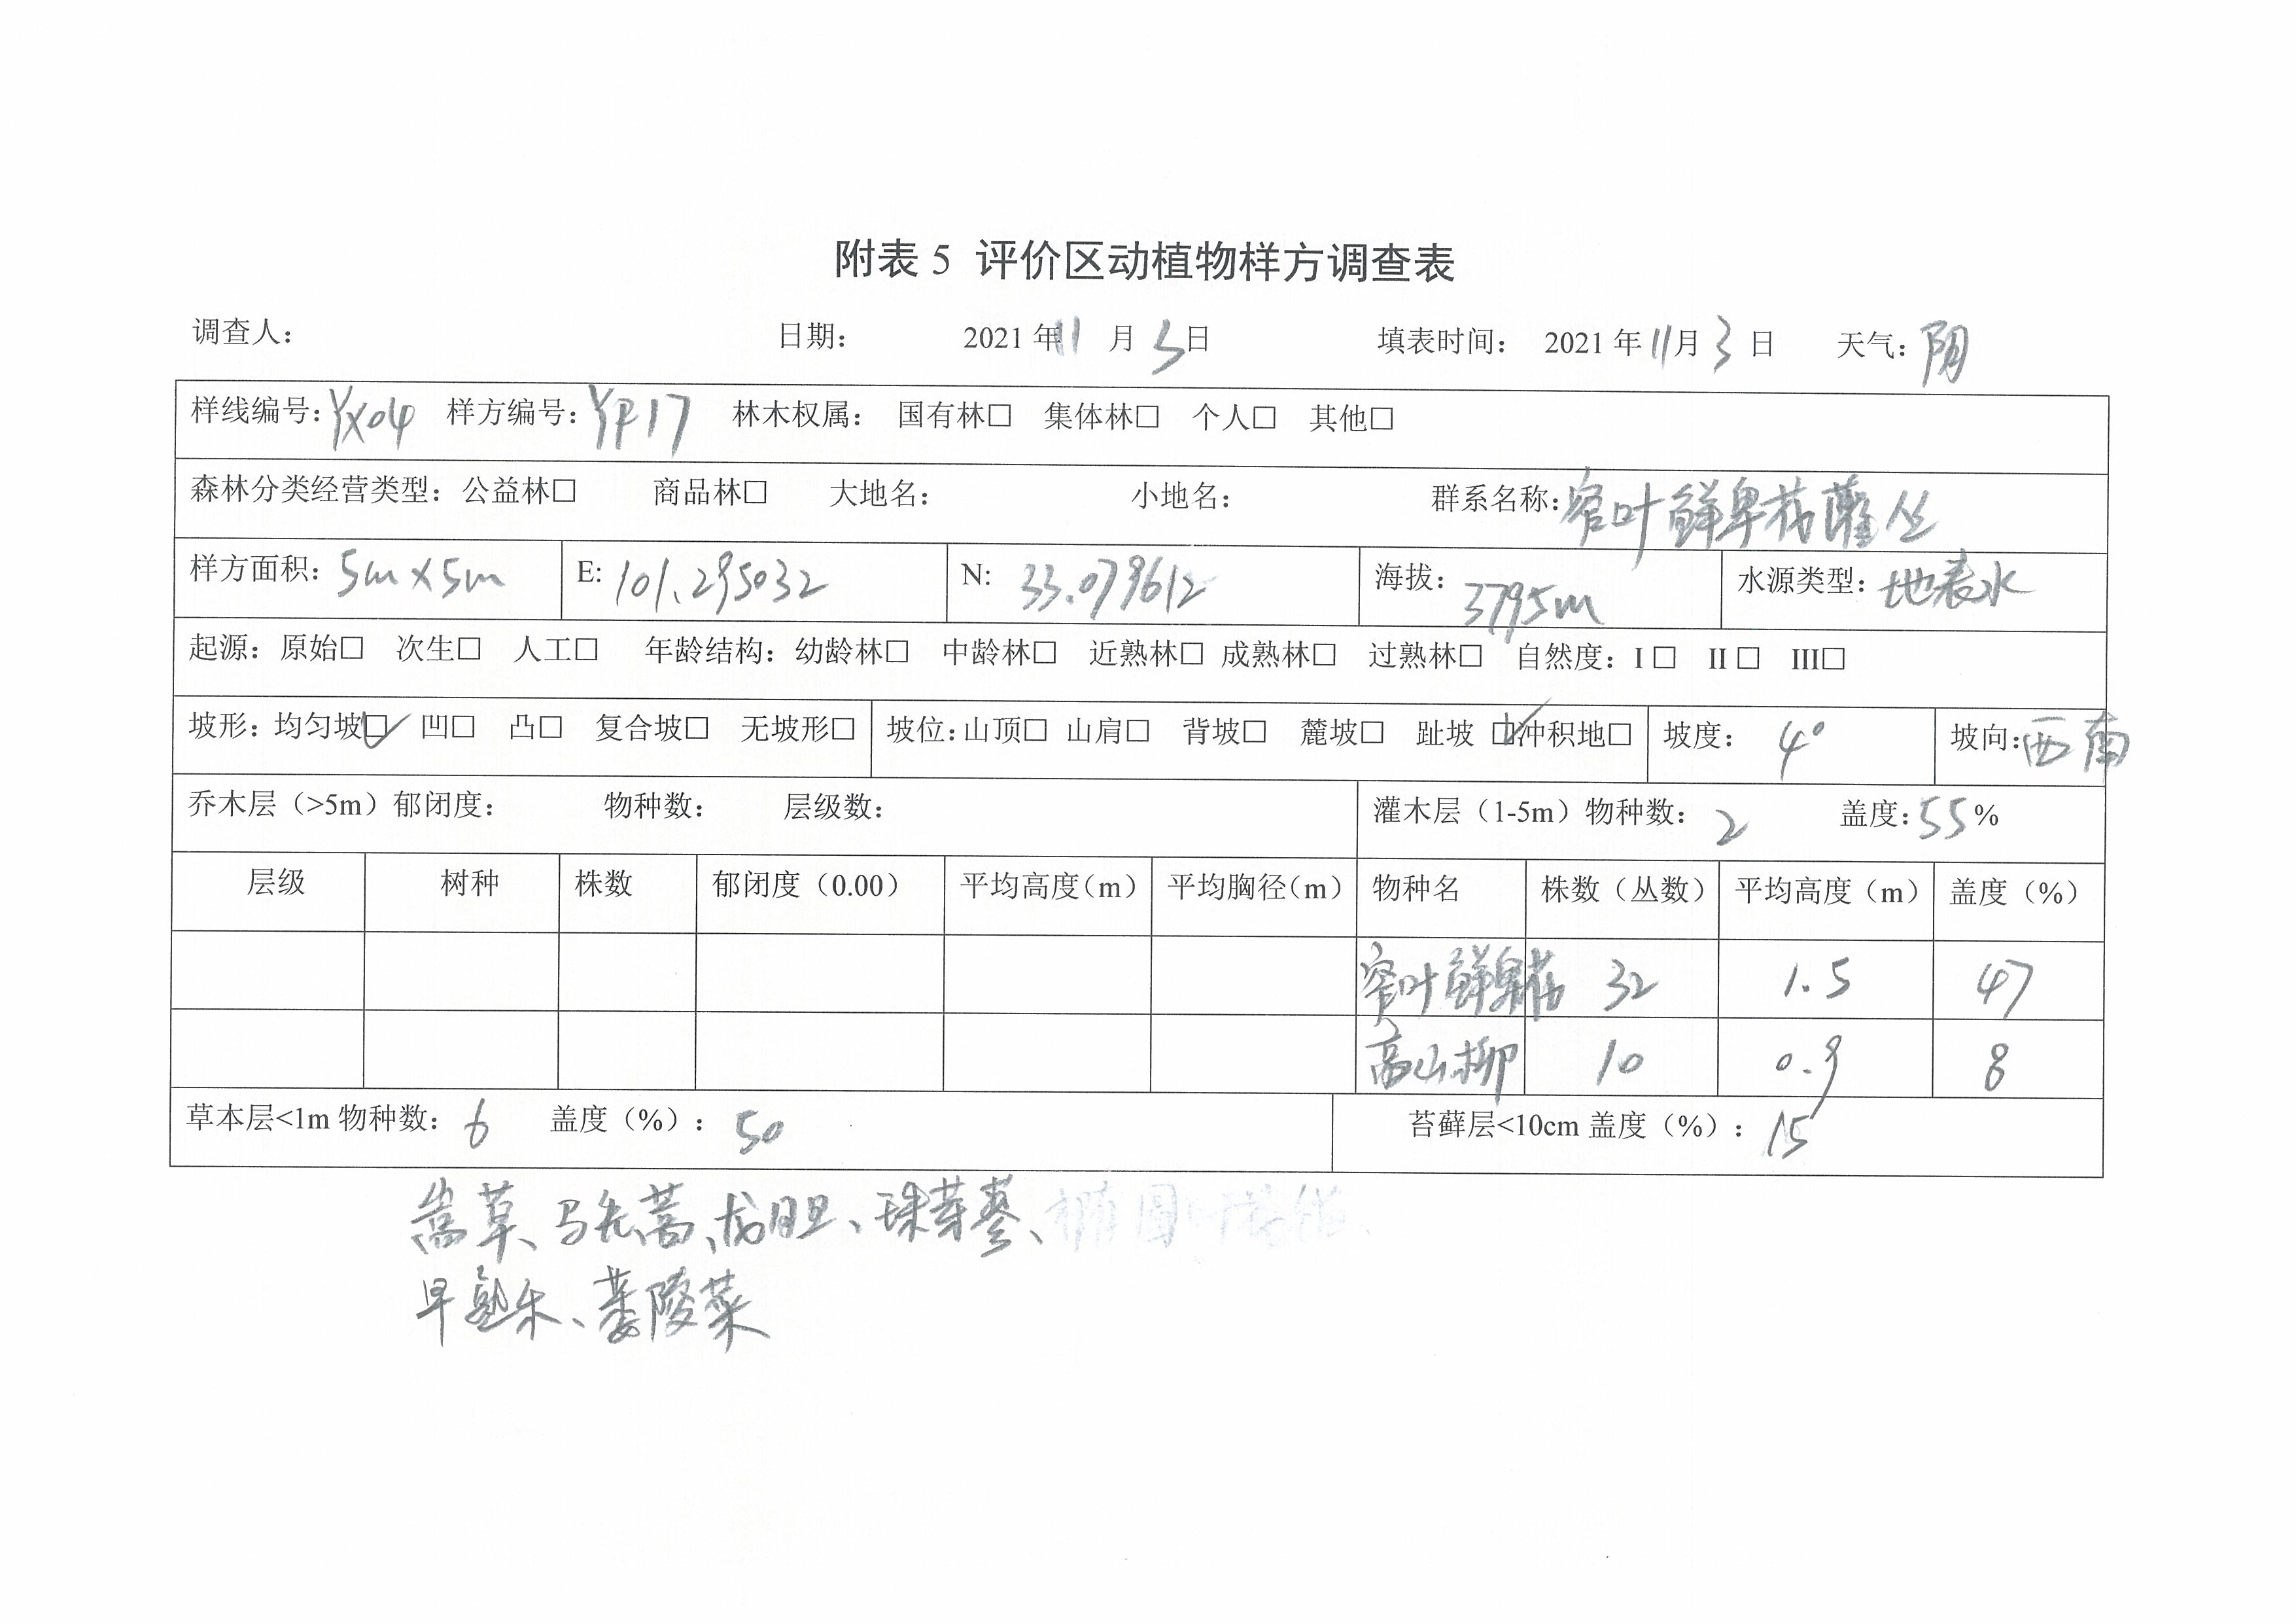 附表 5 评价区动植物样方调查表
调查人： 日期： 2021 年 11 月 3 日 填表时间： 2021 年 11 月 3 日 天气：阴
样线编号：YX04 样方编号：YF17 林木权属： 国有林□ 集体林□ 个人□ 其他□
森林分类经营类型：公益林□ 商品林□ 大地名： 小地名： 群系名称：窄叶鲜卑花灌丛
样方面积：5m×5m E: 101.295032 N: 33.079612 海拔：3795m 水源类型：地表水
起源：原始□ 次生□ 人工□ 年龄结构：幼龄林□ 中龄林□ 近熟林□ 成熟林□ 过熟林□ 自然度：I □ II □ III□
坡形：均匀坡☑ 凹□ 凸□ 复合坡□ 无坡形□ 坡位：山顶□ 山肩□ 背坡□ 麓坡□ 趾坡 ☑冲积地□ 坡度： 4° 坡向：西南
乔木层（>5m）郁闭度： 物种数： 层级数： 灌木层（1-5m）物种数： 2 盖度：55%
层级 树种 株数 郁闭度（0.00） 平均高度（m） 平均胸径（m） 物种名 株数（丛数） 平均高度（m） 盖度（%）
窄叶鲜卑花 32 1.5 47
高山柳 10 0.9 8
草本层<1m 物种数： 6 盖度（%）： 50 苔藓层<10cm 盖度（%）： 15
嵩草、马先蒿、龙胆、珠芽蓼、
早熟禾、萎陵菜